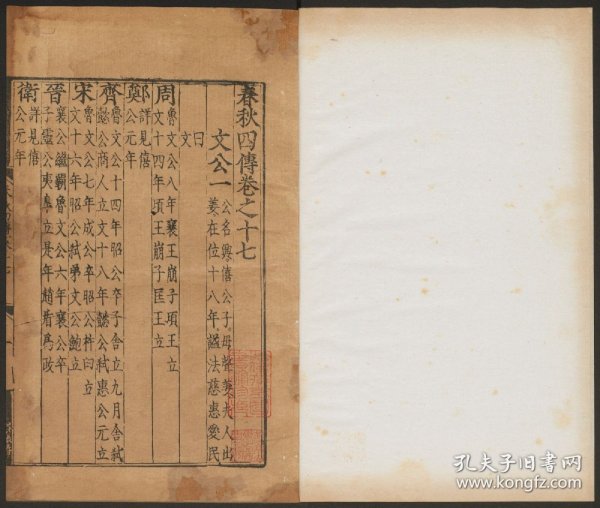 春秋四傳卷之十七
文公一
公名興僖公子母聲姜夫人出
姜在位十八年謚法慈惠愛民
曰文
周
魯文公八年襄王崩子頃王立
文十四年頃王崩子匡王立
鄭
詳見僖
公元年
齊
魯文公十四年昭公卒子舍立九月舍弑
懿公商人立文十八年懿公弑惠公元立
宋
魯文公七年成公卒昭公杵臼立
文十六年昭公弑弟文公鮑立
晉
襄公繼霸魯文公六年襄公卒
子靈公夷臯立是年趙盾爲政
衛
詳見僖
公元年
孔夫子旧书网
www.kongfz.com